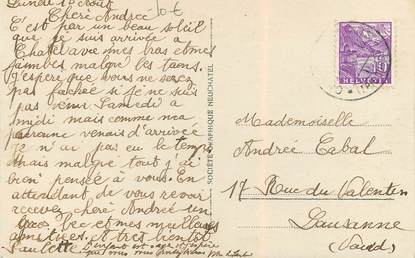 Lundi 10 août
Chère Andrée
C'est par un beau soleil
que je suis arrivée à
mes bras et mes
jambes malgré les taons.
J'espère que vous ne serez
pas fachée si je ne suis
pas venu Samedi à
midi mais comme ma
venais d'arrivée
je n'ai pas eu le temps
mais malgré tout j'ai
bien pensée à vous. En
attendant de vous revoir
recever chère Andrée un
gros Bec et mes meilleures
amitiées. A tret bientot
Paulette
10 €
SOCIÉTÉ GRAPHIQUE NEUCHATEL
HELVETIA
10
Mademoiselle
Andrée Cabal
17 Rue du Valentin
Lausanne
(Vaud)